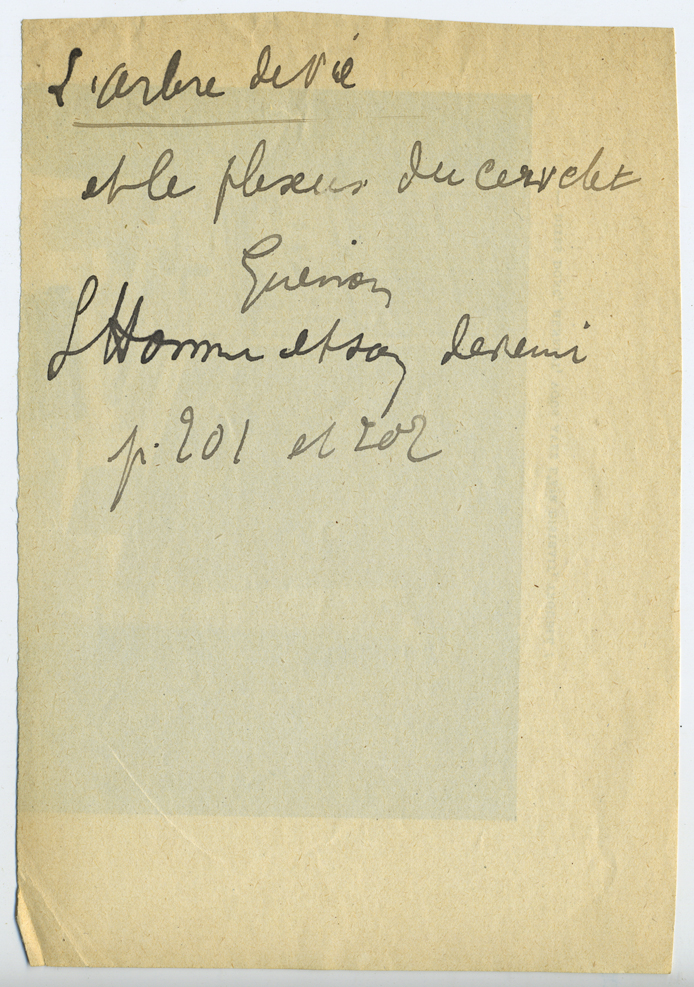 L'arbre de Vie
et le plexus du cervelet
Guénon
L'Homme et son devenir
p. 201 et 202